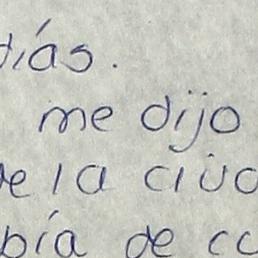 diás.
me dijo
de la ciud
bía de co